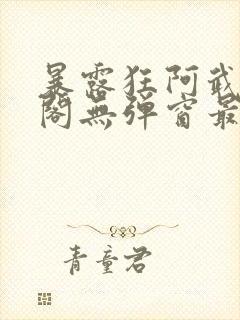 暴露狂阿武
閣無彈窗最
青童君